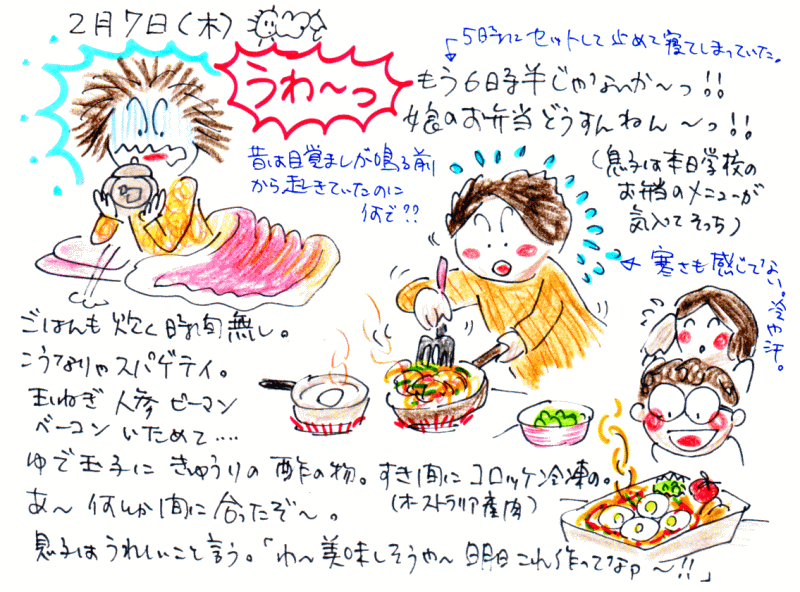 2月7日(木)
うわ〜っ
5時にセットして止めて寝てしまっていた。
もう6時半じゃないか〜っ!!
娘のお弁当どうすんねん〜っ!!
(息子は本日学校の
お弁当のメニューが
気入てそっち)
昔は目覚ましが鳴る前
から起きていたのに
何で??
寒さも感じてない。冷や汗。
ごはんも炊く時間無し。
こうなりゃスパゲティ。
玉ねぎ 人参 ピーマン
ベーコン いためて....
ゆで玉子に きゅうりの酢の物。すき間にコロッケ冷凍の。
(オーストラリア産肉)
あ〜何んか間に合ったぞ〜。
息子はうれしいこと言う。「わ〜美味しそうや〜明日これ作ってなァ〜!!」